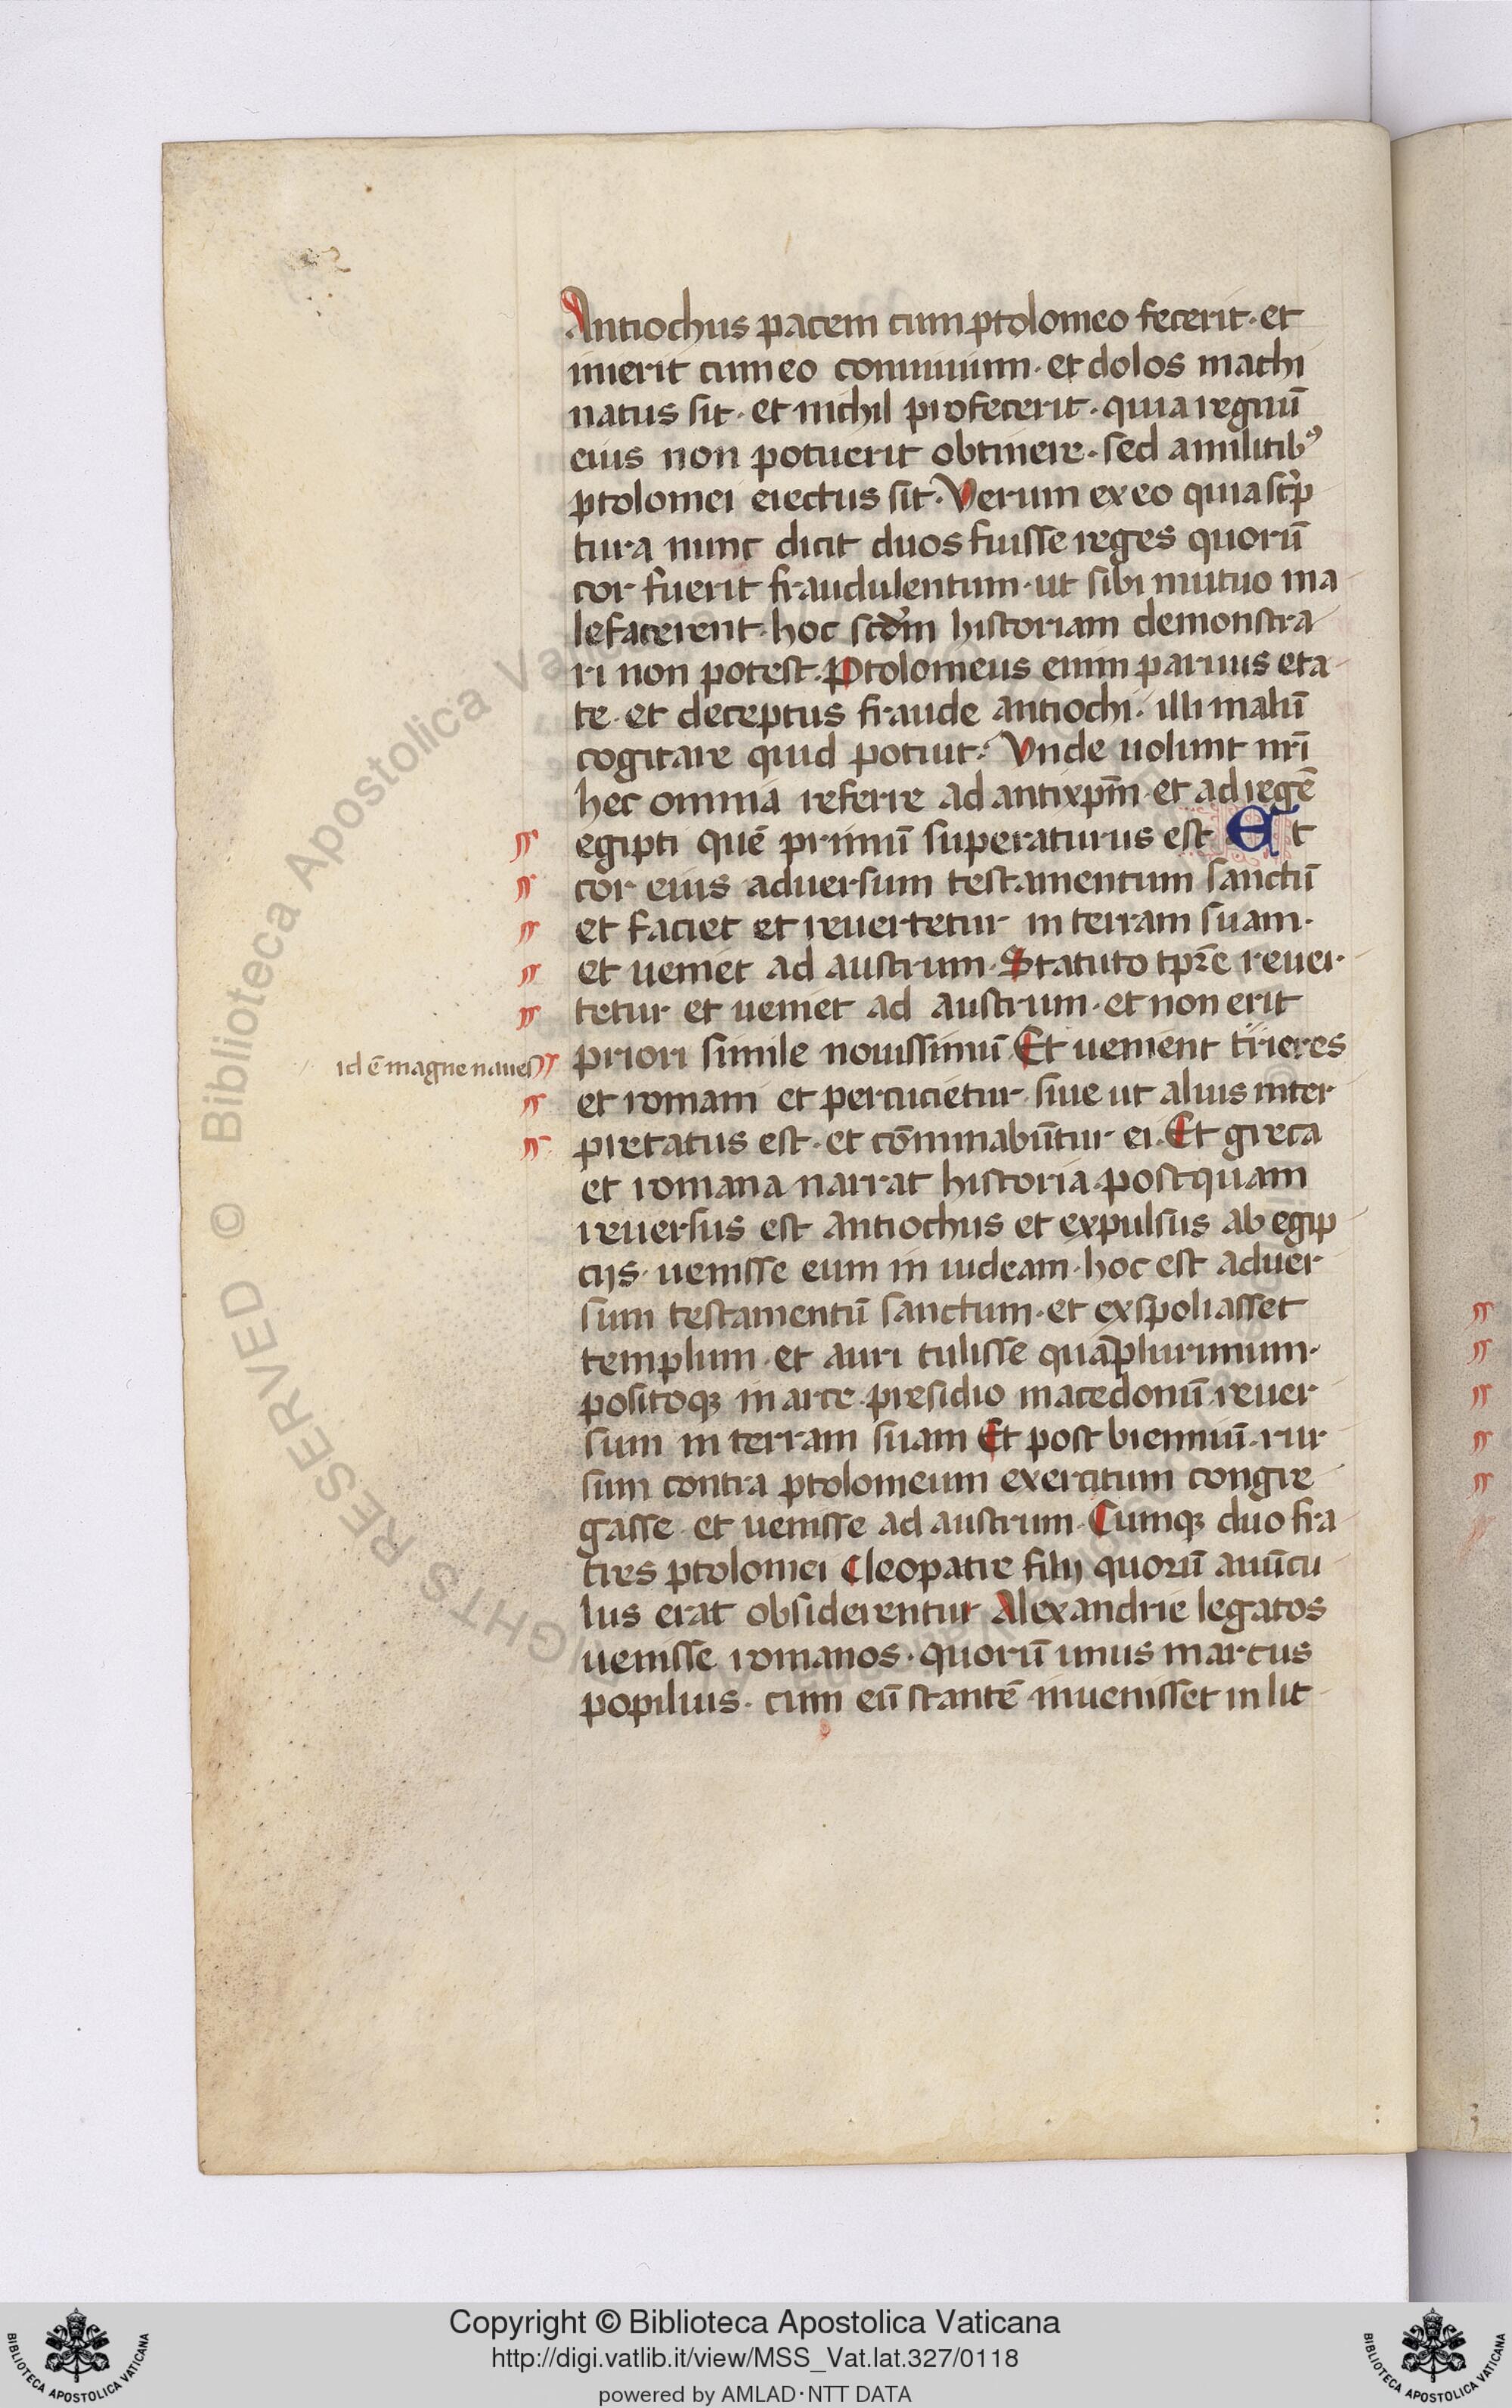 Antiochus pacem cum ptolomeo fecerit · et
inierit cum eo conuiuium · et dolos machi
natus sit · et nichil profecerit · quia regnū
eius non potuerit obtinere · sed a militibꝰ
ptolomei eiectus sit · Verum ex eo quia sc̄p
tura nunc dicit duos fuisse reges quorū
cor fuerit fraudulentum · ut sibi mutuo ma
lefacerent · hoc scd̄m historiam demonstra
ri non potest · Ptolomeus enim paruus eta
te · et deceptus fraude antiochi · illi malū
cogitare quid potuit · Vnde uolunt nr̄i
hec omnia referre ad antixp̄m · et ad regē
egipti quē primū superaturus est · Et
cor eius aduersum testamentum sanctū
et faciet et reuertetur in terram suam ·
et ueniet ad austrum · Statuto tp̄re reuer
tetur et ueniet ad austrum · et non erit
id ē magne naues
priori simile nouissimū Et uenient trieres
et romani et percucietur · siue ut alius inter
pretatus est · et cōminabūtur ei · Et greca
et romana narrat historia · postquam
reuersus est antiochus et expulsus ab egip
ciis · uenisse eum in iudeam · hoc est aduer
sum testamentū sanctum · et exspoliasset
templum · et auri tulisse quāplurimum ·
positoqꝫ in arce presidio macedonū · reuer
sum in terram suam Et post bienniū · rur
sum contra ptolomeum exercitum congre
gasse · et uenisse ad austrum · Cumqꝫ duo fra
tres ptolomei Cleopatre filij quorū auūcu
lus erat obsiderentur Alexandrie legatos
uenisse romanos · quorū unus marcus
popilius · cum eū stantē inuenisset in lit
Biblioteca Apostolica Vaticana ©
RIGHTS RESERVED ©
Copyright © Biblioteca Apostolica Vaticana
http://digi.vatlib.it/view/MSS_Vat.lat.327/0118
powered by AMLAD·NTT DATA
BIBLIOTECA APOSTOLICA VATICANA
BIBLIOTECA APOSTOLICA VATICANA